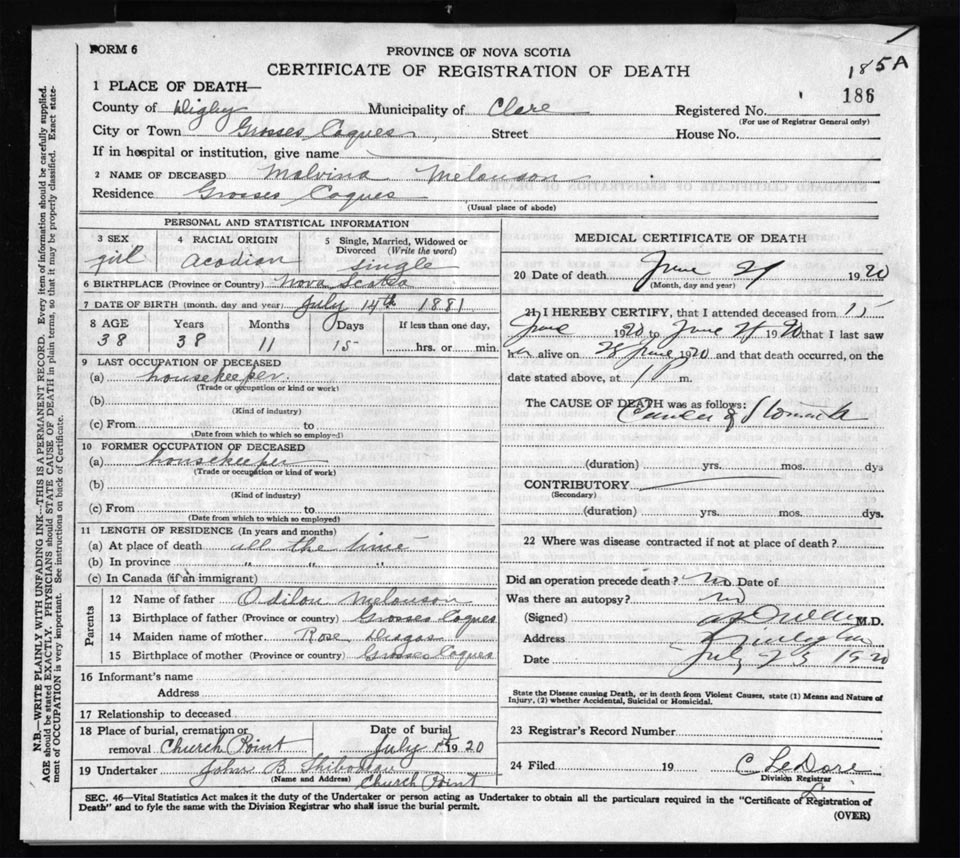 FORM 6
PROVINCE OF NOVA SCOTIA
CERTIFICATE OF REGISTRATION OF DEATH
185A
186
1 PLACE OF DEATH—
County of Digby Municipality of Clare Registered No.
(For use of Registrar General only)
City or Town Grosses Coques, Street House No.
If in hospital or institution, give name
2 NAME OF DECEASED Malvina Melanson
Residence Grosses Coques
(Usual place of abode)
PERSONAL AND STATISTICAL INFORMATION
3 SEX 4 RACIAL ORIGIN 5 Single, Married, Widowed or
Divorced (Write the word)
girl acadian single
6 BIRTHPLACE (Province or Country) Nova Scotia
7 DATE OF BIRTH (month, day and year) July 14th 1881
8 AGE Years Months Days If less than one day,
38 38 11 15 hrs. or min.
9 LAST OCCUPATION OF DECEASED
(a) housekeeper
(Trade or occupation or kind or work)
(b)
(Kind of industry)
(c) From to
(Date from which to which so employed)
10 FORMER OCCUPATION OF DECEASED
(a) housekeeper
(Trade or occupation or kind of work)
(b)
(Kind of industry)
(c) From to
(Date from which to which so employed)
11 LENGTH OF RESIDENCE (In years and months)
(a) At place of death all the time
(b) In province " " "
(c) In Canada (if an immigrant)
Parents
12 Name of father Odilon Melanson
13 Birthplace of father (Province or country) Grosses Coques
14 Maiden name of mother Rose
15 Birthplace of mother (Province or country) Grosses Coques
16 Informant's name
Address
17 Relationship to deceased
18 Place of burial, cremation or Date of burial
removal Church Point July 1st 1920
19 Undertaker John B Thibodeau
(Name and Address) Church Point
MEDICAL CERTIFICATE OF DEATH
20 Date of death June 29 1920
(Month, day and year)
21 I HEREBY CERTIFY, that I attended deceased from 15
June 1920 to June 29 1920 that I last saw
her alive on 28 June 1920 and that death occurred, on the
date stated above, at 1 P m.
The CAUSE OF DEATH was as follows:
Cancer of Stomach
(duration) yrs. mos. dys
CONTRIBUTORY
(Secondary)
(duration) yrs. mos. dys.
22 Where was disease contracted if not at place of death?
Did an operation precede death? no Date of
Was there an autopsy? no
(Signed) M.D.
Address
Date July 23 1920
State the Disease causing Death, or in death from Violent Causes, state (1) Means and Nature of
Injury, (2) whether Accidental, Suicidal or Homicidal.
23 Registrar's Record Number
24 Filed 19 C LeDore
Division Registrar
SEC. 46—Vital Statistics Act makes it the duty of the Undertaker or person acting as Undertaker to obtain all the particulars required in the "Certificate of Registration of
Death" and to fyle the same with the Division Registrar who shall issue the burial permit.
(OVER)
N.B.—WRITE PLAINLY WITH UNFADING INK—THIS IS A PERMANENT RECORD. Every item of information should be carefully supplied.
AGE should be stated EXACTLY. PHYSICIANS should STATE CAUSE OF DEATH in plain terms, so that it may be properly classified. Exact state-
ment of OCCUPATION is very important. See instructions on back of Certificate.